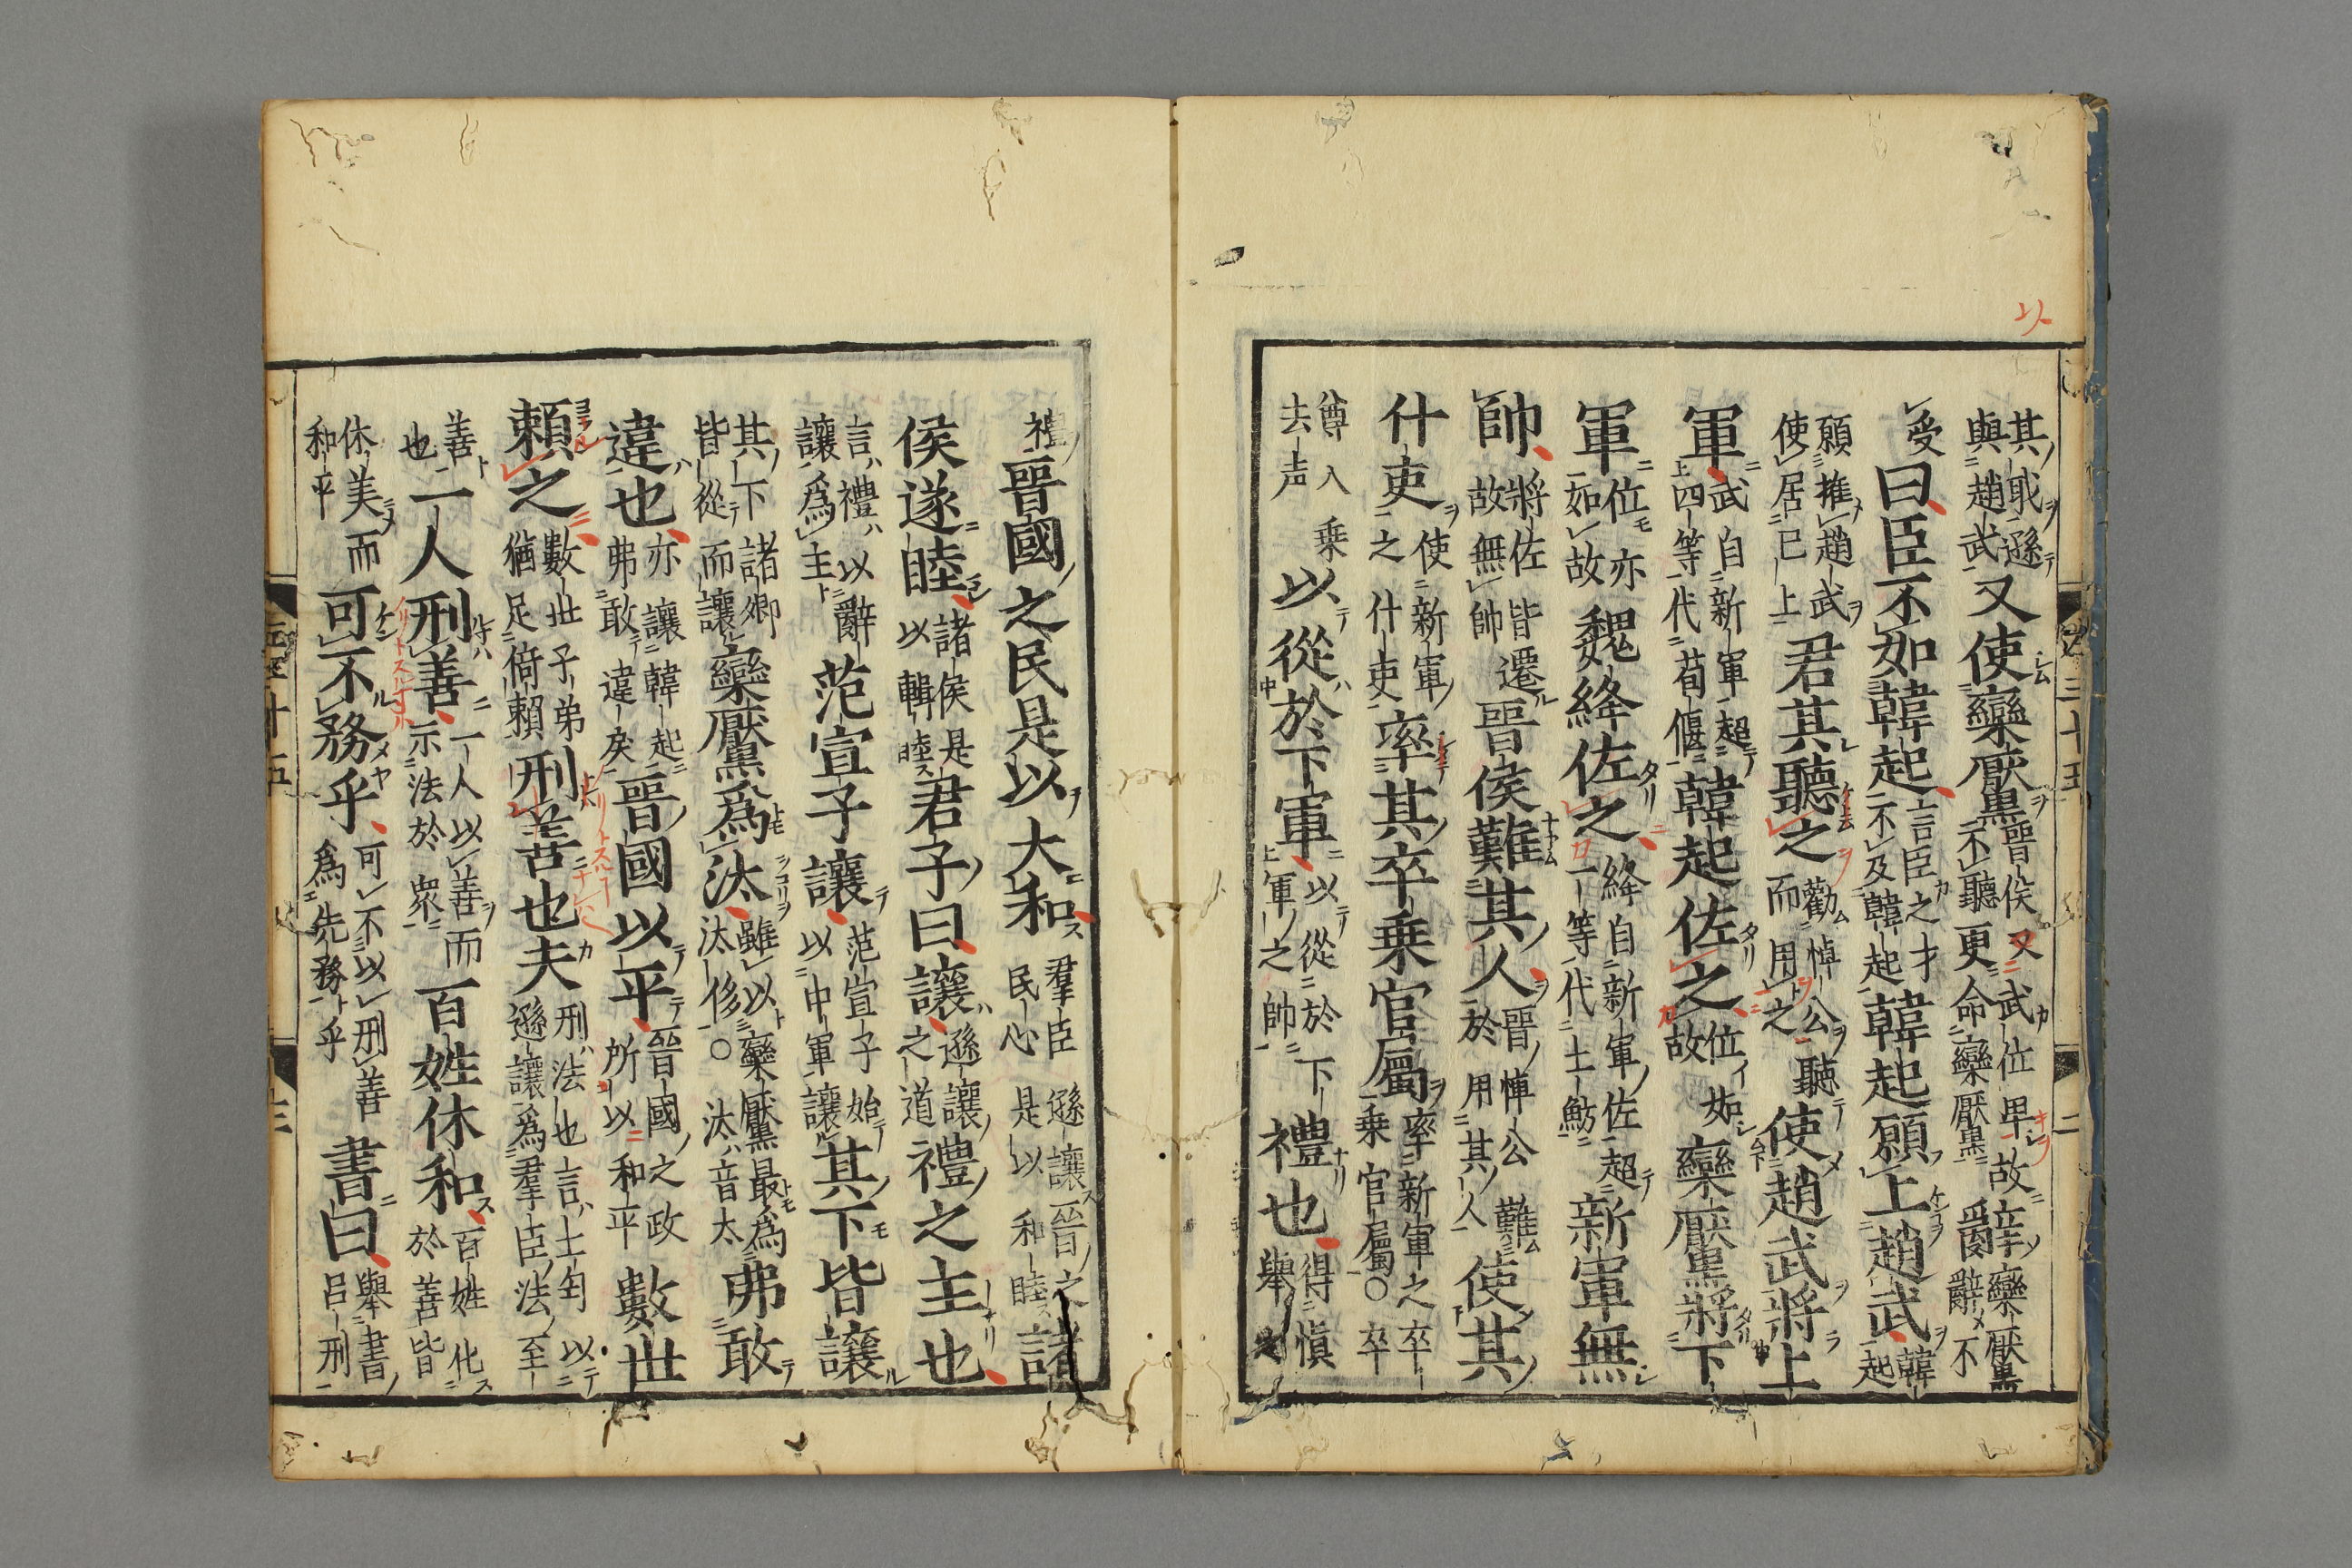 以
其戢遜與趙武又使欒黶晉侯又武位卑故不聽更命欒黶辭欒黶辭不
受曰臣不如韓起言臣之才不及韓起韓起願上趙武韓起
願推趙武使居己上君其聽之勸悼公聽而用之使趙武將上
軍武自新軍超四等代荀偃韓起佐之位如故欒黶將下
軍位亦如故魏絳佐之絳自新軍佐超一等代士魴新軍無
帥將佐皆遷故無帥晉侯難其人晉悼公難於用其人使其
什吏使新軍之什吏率其卒乘官屬率新軍之卒乘官屬○卒
尊入乘去声以從於下軍以從於下軍之帥禮也得慎舉
禮晉國之民是以大和羣臣遜讓晉之民心是以和睦諸
侯遂睦諸侯是以輯睦君子曰讓遜讓之道禮之主也
言禮以辭讓為主范宣子讓范宣子始以中軍讓其下皆讓
其下諸卿皆從而讓欒黶為汰雖以欒黶最為汰侈○汰音太弗敢
違也亦讓韓起弗敢違矣晉國以平晉國之政所以和平數世
賴之數世子弟猶足倚賴刑善也夫刑法也言士匄以遜讓為羣臣法至
善也一人刑善一人以善而示法於衆百姓休和百姓化於善皆
休美而和平可不務乎可不以刑善為先務乎書曰舉書呂刑
卷三十五
二
十五